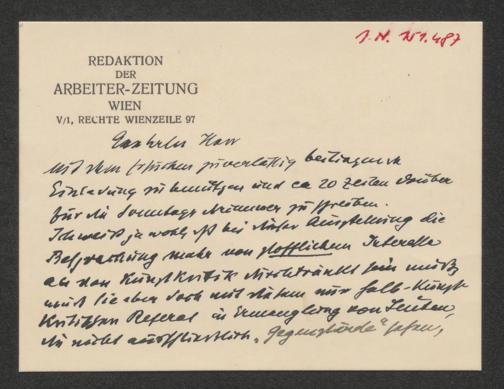 J.N. 151.487
REDAKTION
DER
ARBEITER-ZEITUNG
WIEN
V/1, RECHTE WIENZEILE 97
Geehrter Herr
mit dem
Einladung zu benützen und ca 20 Zeilen darüber
für die Sonntags Nummer zu schreiben.
Ich weiß ja wohl, daß bei dieser Ausstellung die
Besprechung mehr von stofflichem Interesse
als von Kunstkritik durchtränkt sein müßte
muß Sie aber doch mit diesem nur halb-Kunst-
kritischen Referat in Ermanglung von Leuten,
die nicht ausschließlich „Gegenstände" sehen,